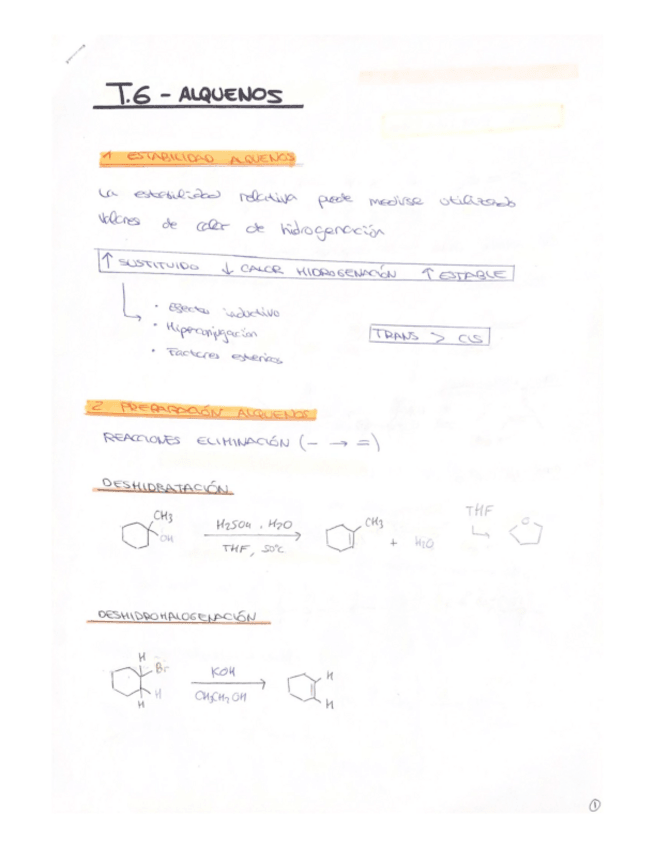 T.6 - ALQUENOS
1 ESTABILIDAD ALQUENOS
La estabilidad relativa puede medirse utilizando
valores de calor de hidrogenación
↑ SUSTITUIDO ↓ CALOR HIDROGENACIÓN ↑ ESTABLE
· Efecto inductivo
· Hiperconjugación
· Factores estéricos
TRANS > CIS
2 PREPARACIÓN ALQUENOS
REACCIONES ELIMINACIÓN (- → =)
DESHIDRATACIÓN
CH3
OH
H2SO4, H2O
THF, 50°C
CH3
+ H2O
THF
O
DESHIDROHALOGENACIÓN
H
Br
H
H
KOH
CH3CH2OH
H
H
1